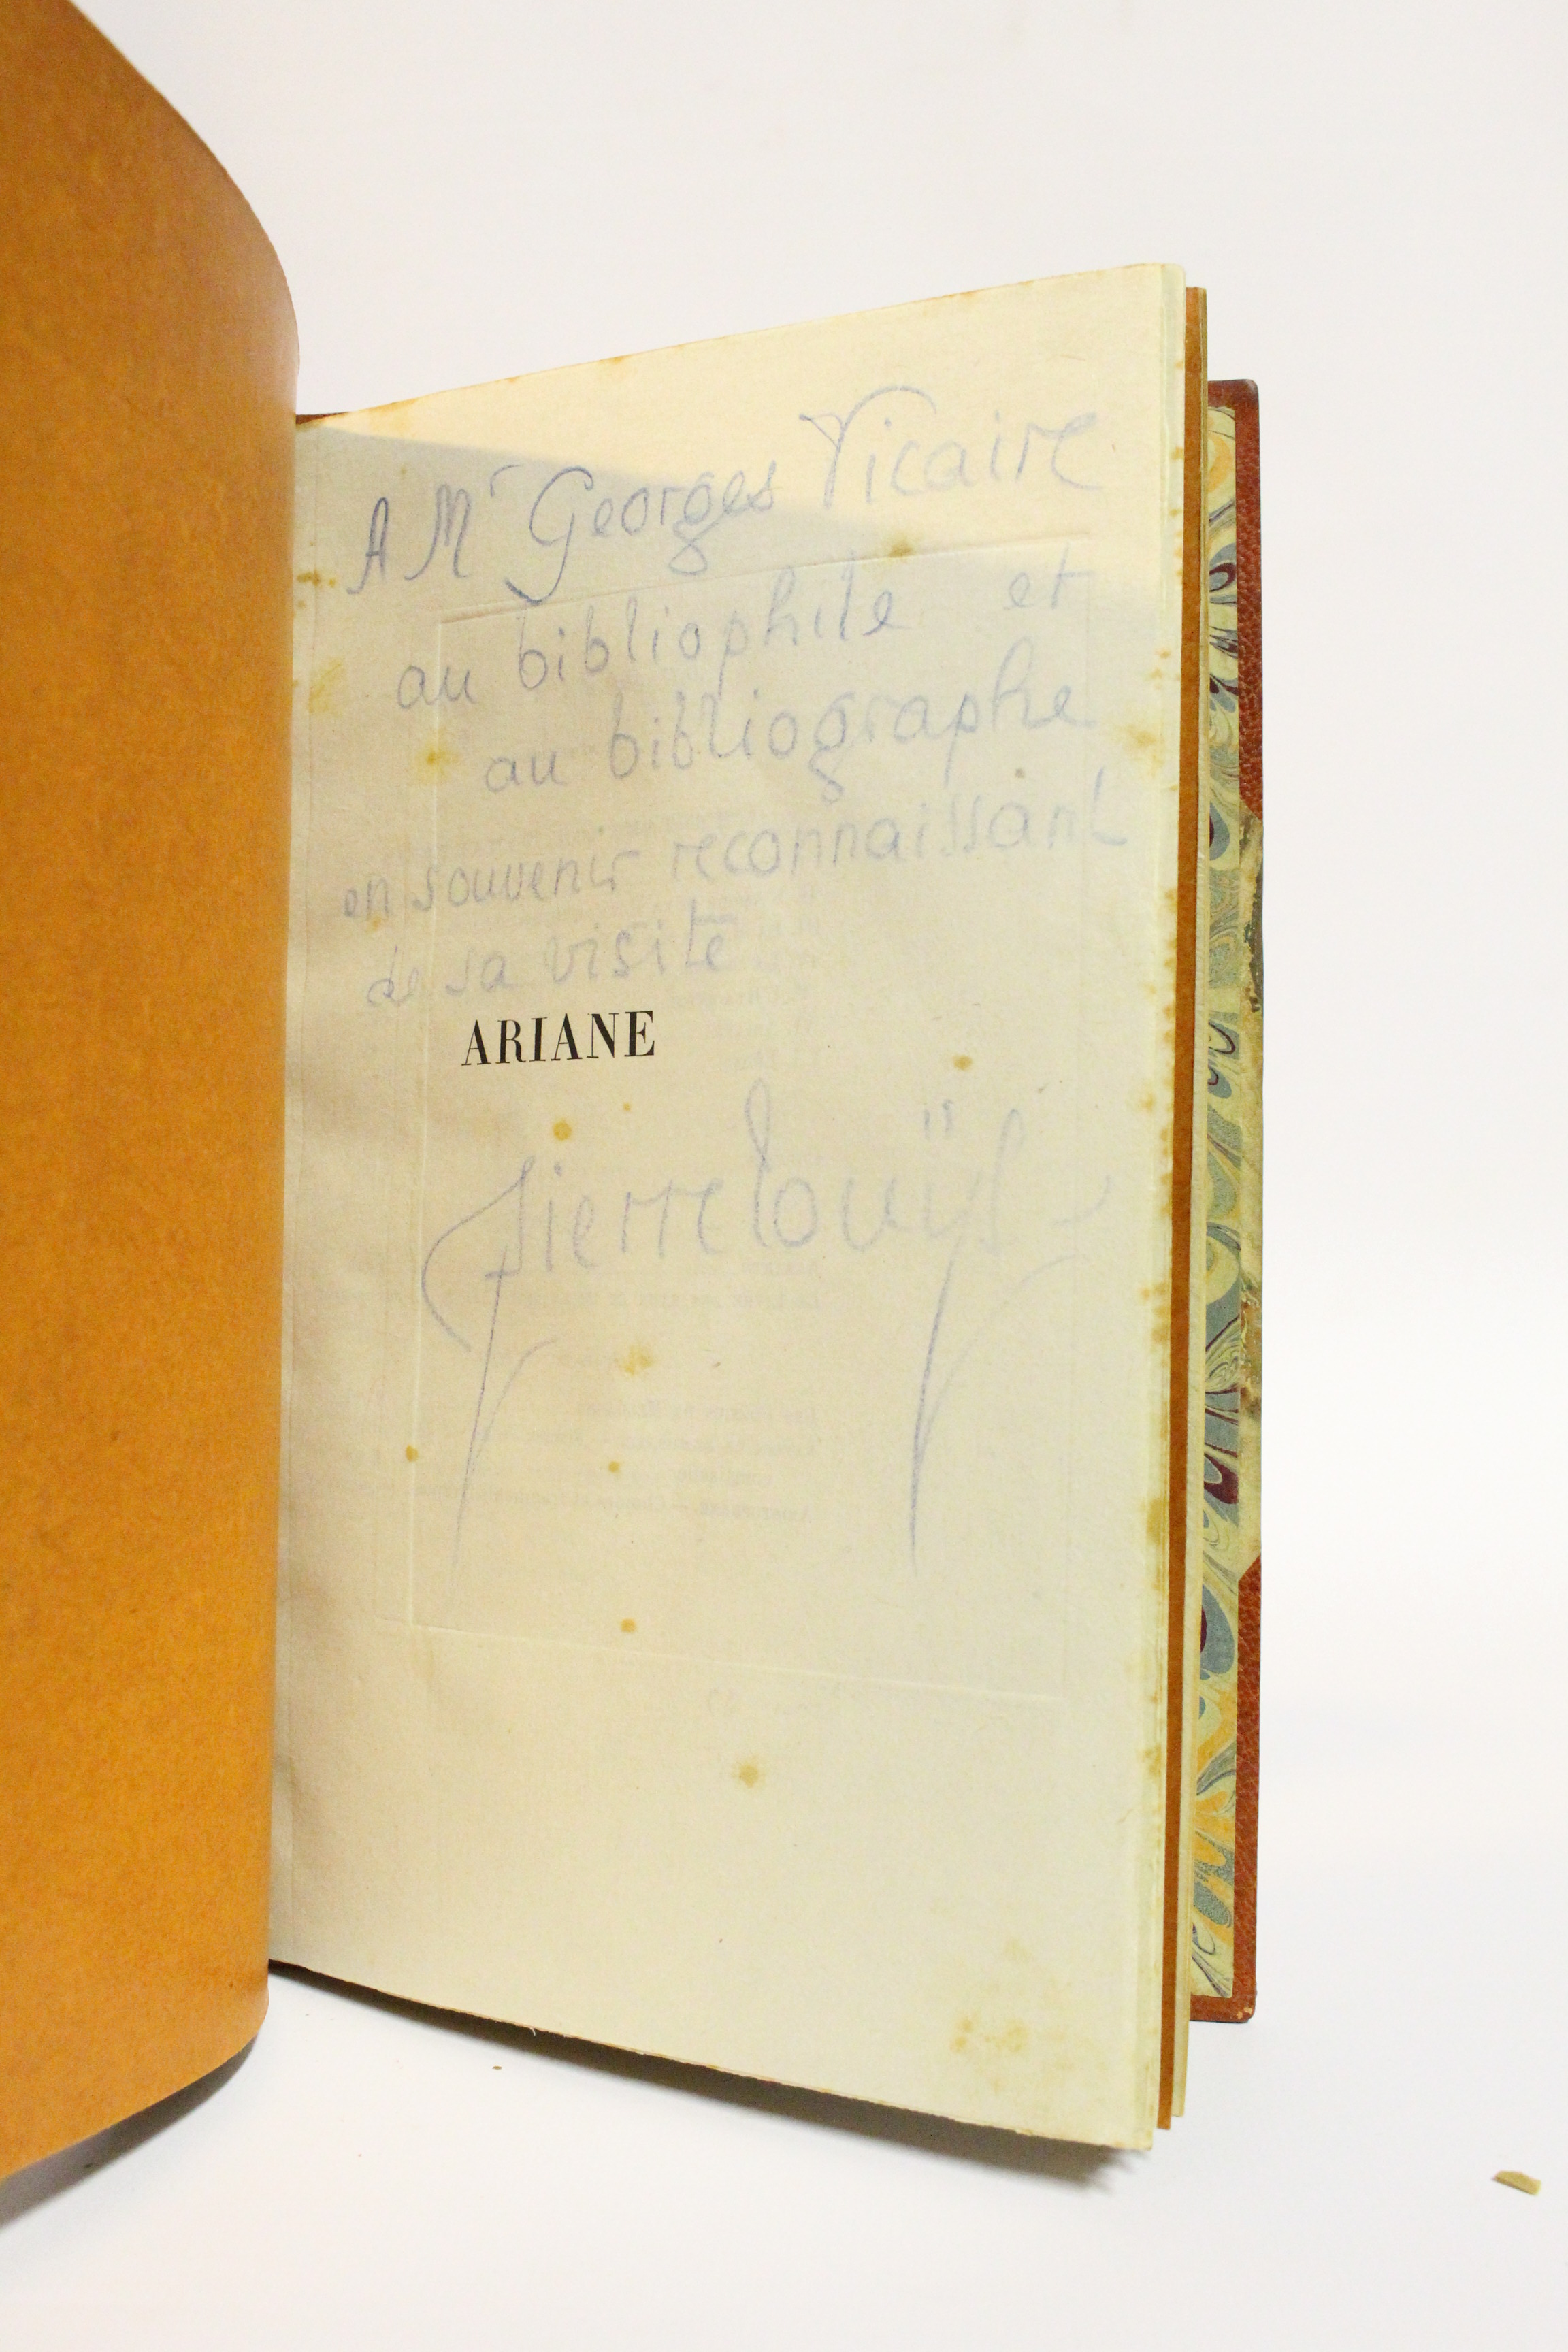 A Mr Georges Vicaire
au bibliophile et
au bibliographe
en souvenir reconnaissant
de sa visite
ARIANE
Pierre Louÿs